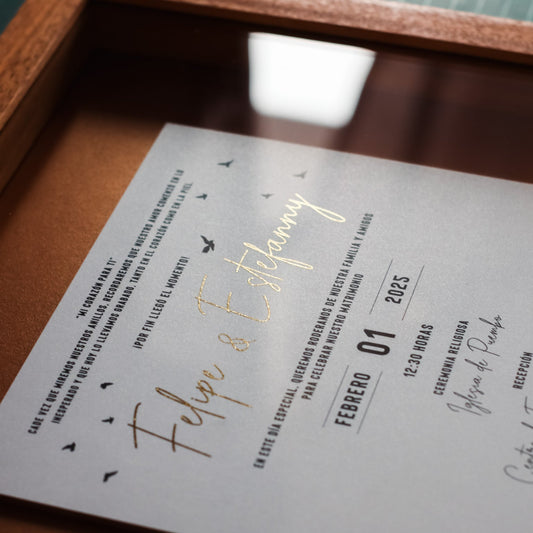 "MI CORAZÓN PARA TI"
CADA VEZ QUE MIREMOS NUESTROS ANILLOS, RECORDAREMOS QUE NUESTRO AMOR COMENZÓ EN LO
INESPERADO Y QUE HOY LO LLEVAMOS GRABADO, TANTO EN EL CORAZÓN COMO EN LA PIEL.
¡POR FIN LLEGÓ EL MOMENTO!
Felipe & Estefanny
EN ESTE DÍA ESPECIAL, QUEREMOS RODEARNOS DE NUESTRA FAMILIA Y AMIGOS
PARA CELEBRAR NUESTRO MATRIMONIO
FEBRERO 01 2025
12:30 HORAS
CEREMONIA RELIGIOSA
Iglesia de Puembo
RECEPCIÓN
Centro de